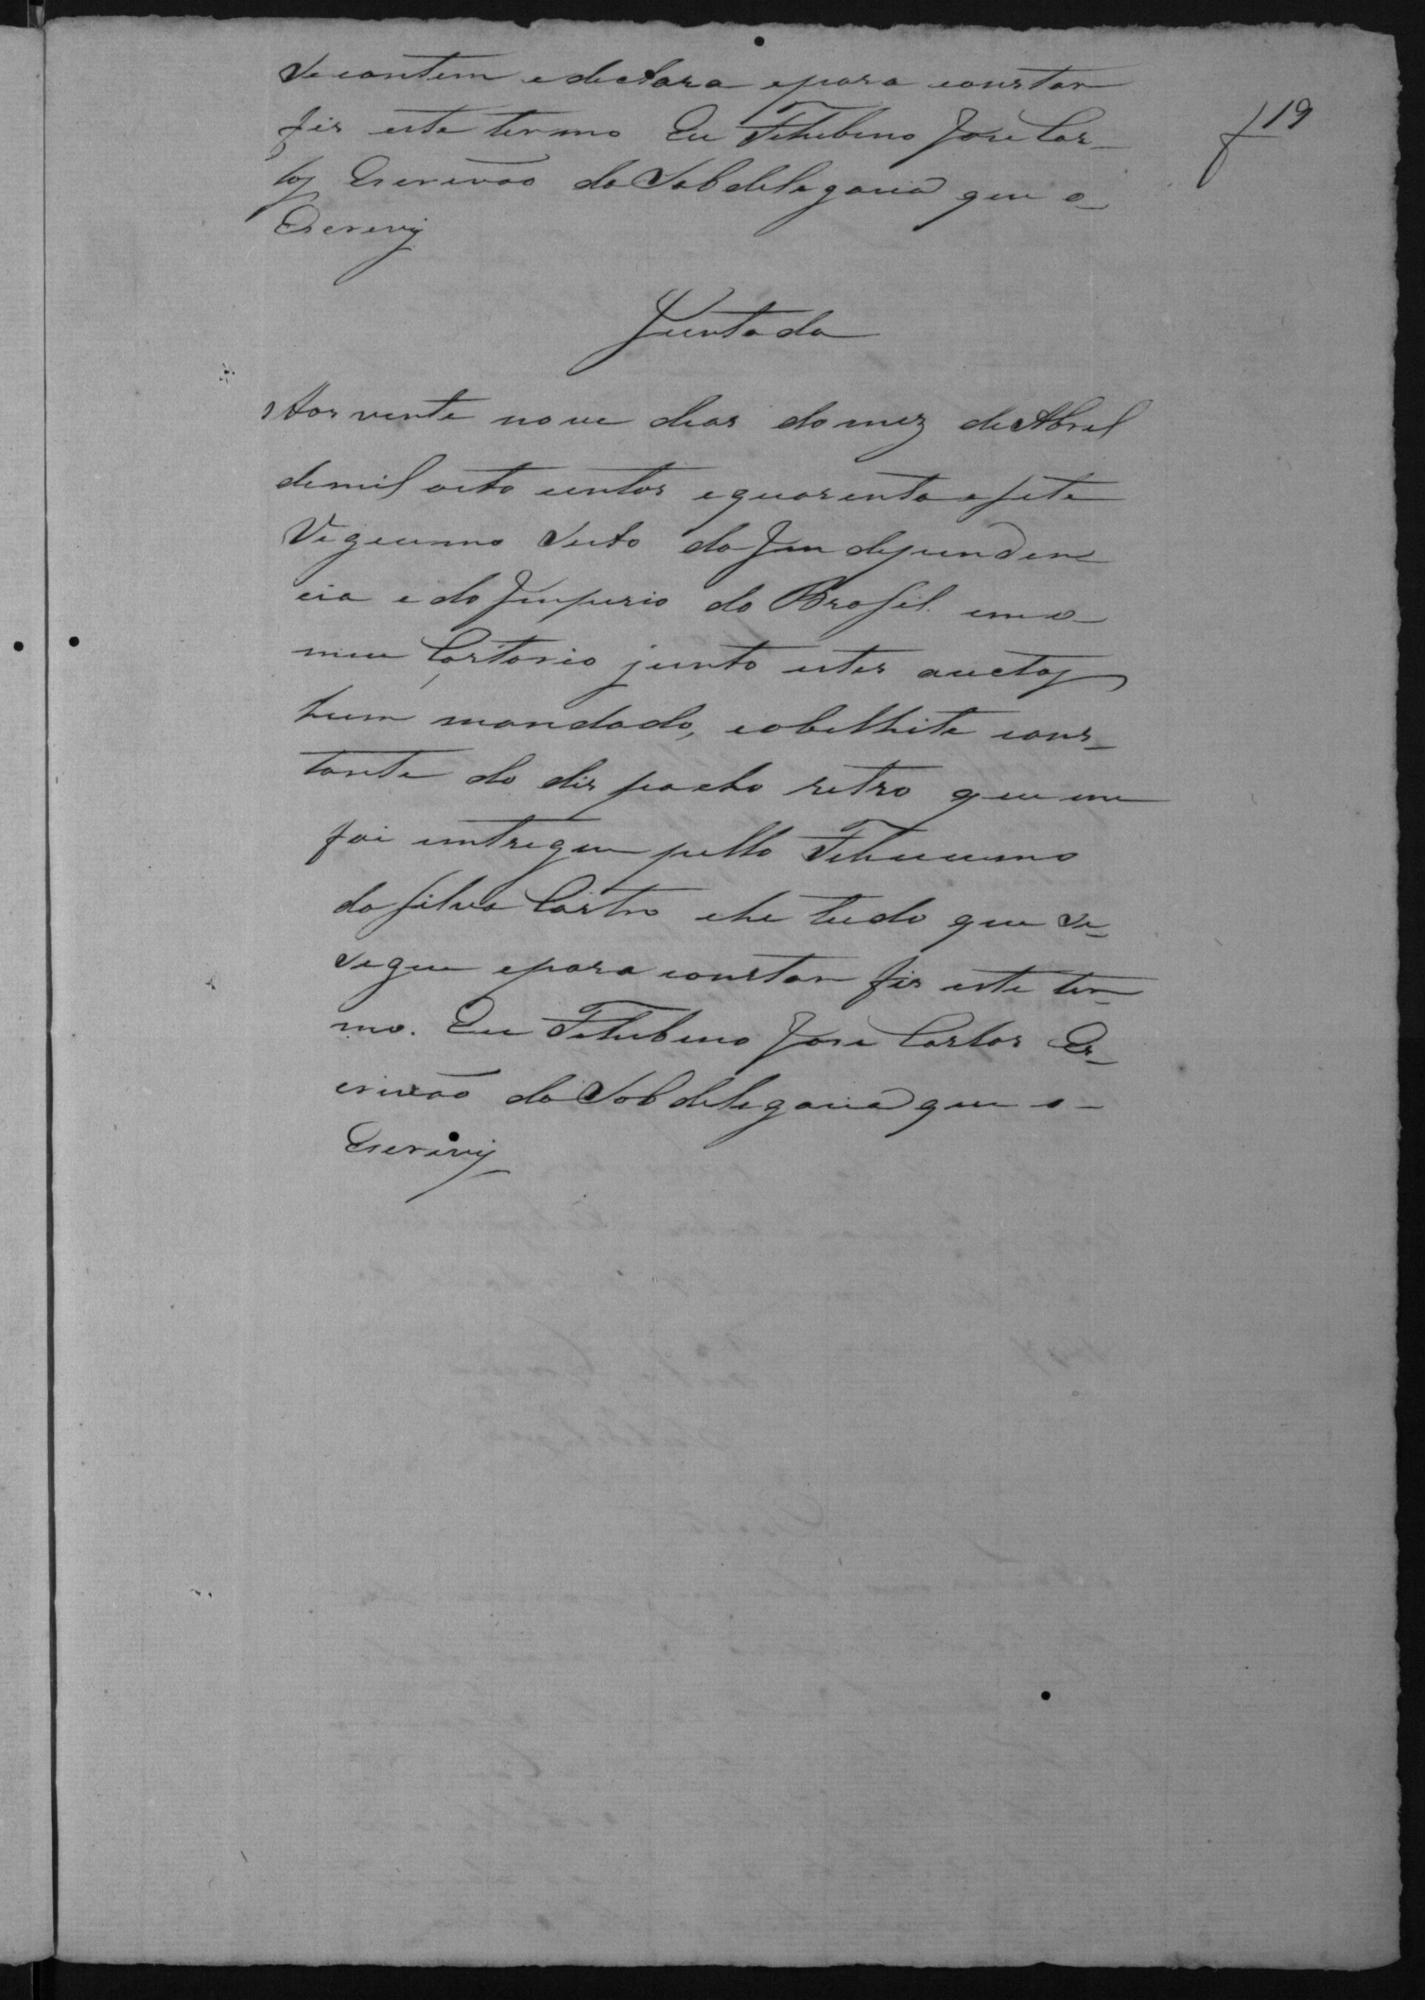 Se contem e declara e para constar
fis este termo Eu Felisbino Jose Car-
los Escrivão da Sobdelegacia que o
Escrevy
f 19
Juntada
Aos vente nove dias do mez de Abril
de mil oito centos e quarenta e sete
Vigecimo Seisto da Independen
cia e do Imperio do Brasil em o
meu Cartorio junto estes auctos
hum mandado, e o belhite cons-
tante do dis pacho retro que me
foi entregue pello
da Silva Castro e he tudo que se
segue e para constar fis este ter-
mo. Eu Felisbino Jose Carlos Es-
crivão da Sobdelegacia que o
Escrivy